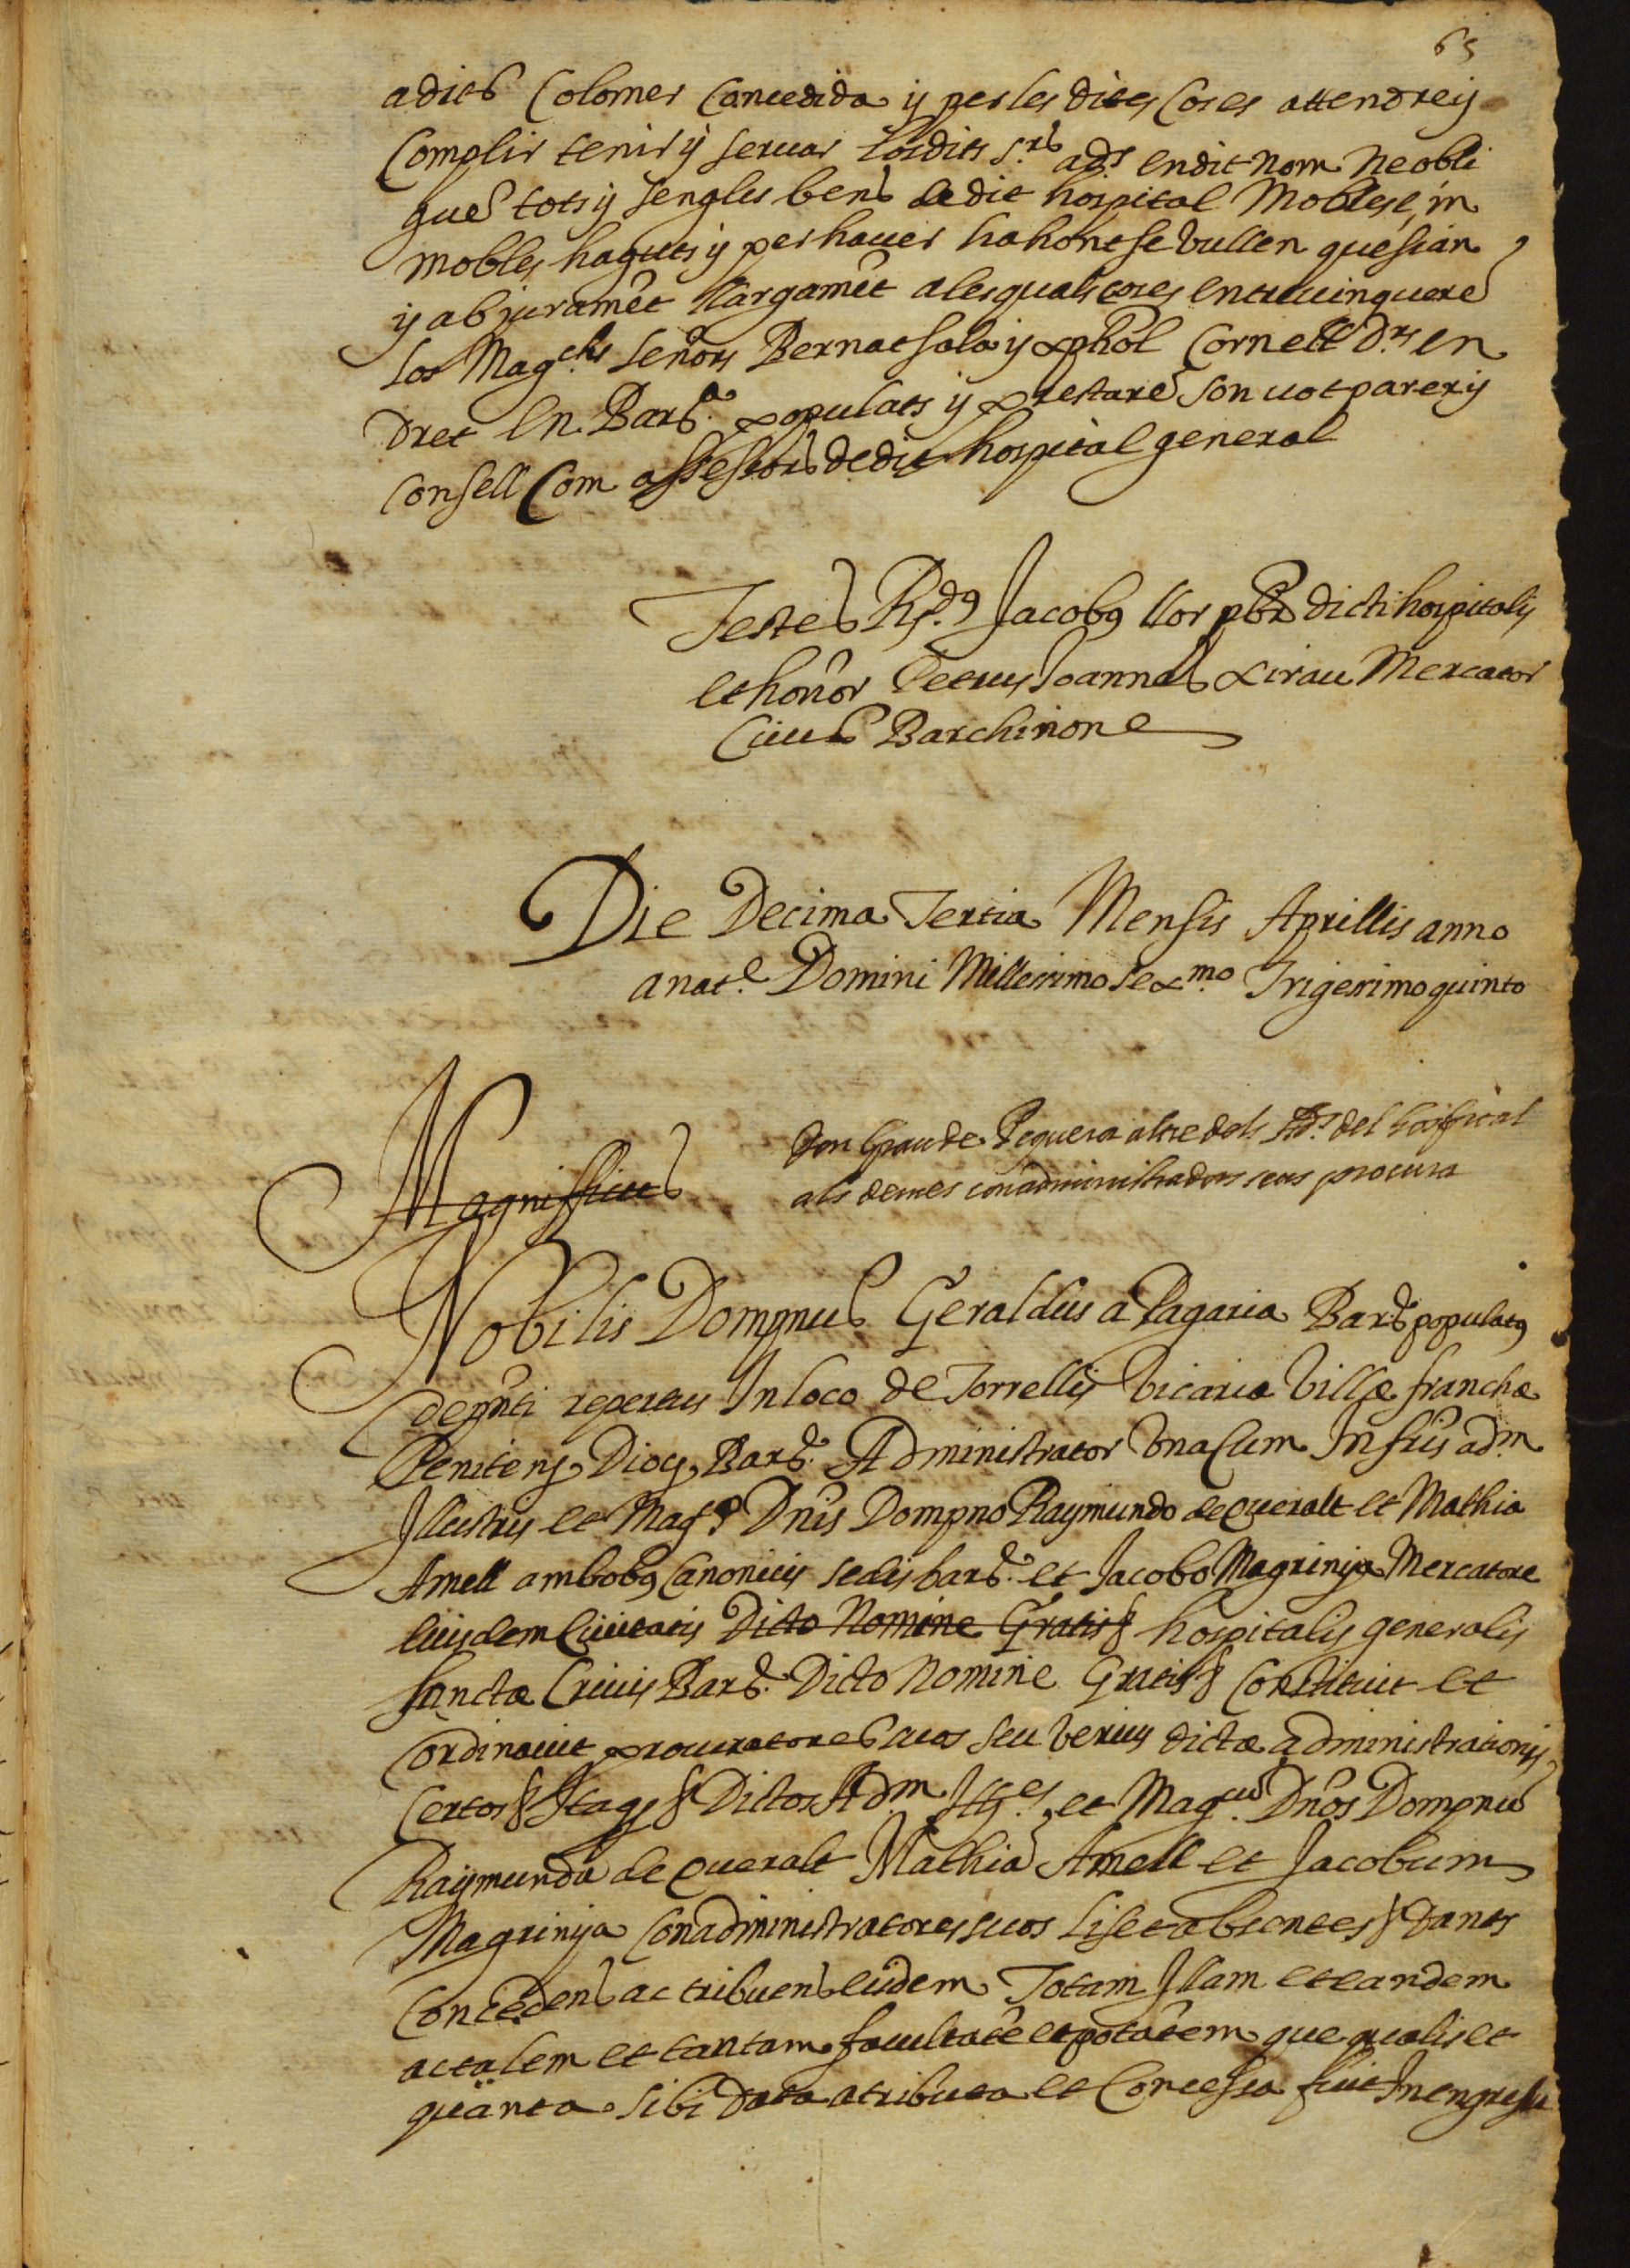 65
a dict Colomer Concedida y per les dites Coses attendre y
Complir tenir y servar los dits S.rs ad.rs en dit nom ne obli
guẽ tots y sengles bens de dit hospital Mobles e, in
mobles haguts y per haver ha hont se vullen que sian
y ab juramẽt llargamẽt a les quals coses entrevinguerẽ
los Mag.chs señors Bernat Sala y xpõhol Cornell D.rs en
Dret en Bar.ª populats y prestarẽ son vot parer y
Consell Com assessors de dit hospital general
Testes R.dus Jacobus llor pbr dicti hospitalis
et honor Petrus Joannes Xirau Mercator
Civis Barchinone
Die Decima Tertia Mensis Aprillis anno
a nat.e Domini Millesimo sex.mo Trigesimo quinto
Magnifficus
Don Grau de Peguera altre dels Ad.rs del hospital
als demes conadministradors seus procura
Nobilis Dompnus Geraldus a Pagaria Bar.e populatus
de pñti repertus In loco de Torrellis vicaria Villæ franchæ
Penitens, Diocs, Bar.e Administrator Una Cum Infrũs adm.
Illustris et Mag.s Dnis Dompno Raymundo de Queralt et Mathia
Amell ambobus Canonicis sedis bar.e et Jacobo Magrinya Mercatore
eiusdem Civitatis Dicto Nomine Gratis § hospitalis generalis
sanctæ Crucis Bar.e Dicto Nomine Gratis § Constituit et
Ordinavit procuratores suos seu verius dictæ administrationis
Certos § Itaqs § Dictos Adm. Ill.es et Mag.cos Dños Dompnũ
Raymundũ de Queralt Mathiã Amell et Jacobum
Magrinya Conadministratores suos Licet absentes § Dans
Concedens ac tribuens eisdem Totam Illam et eandem
ac talem et tantam facultatẽ et potãtem que qualis et
quanta sibi data atributa et Concessa fuit In engressu